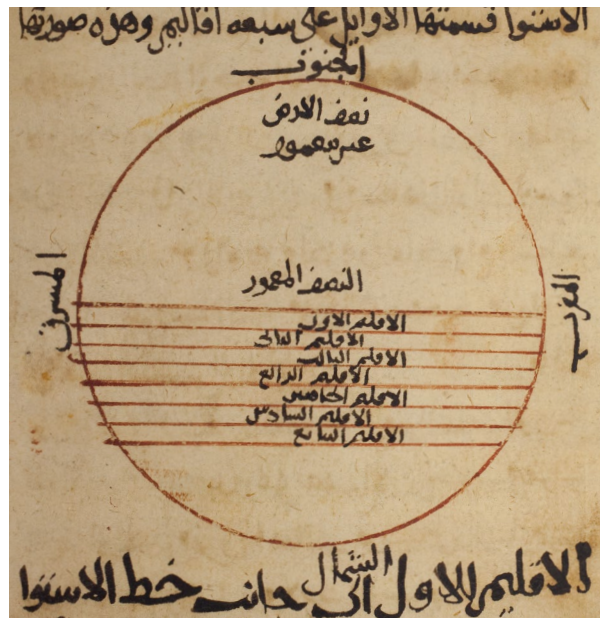 الاستوا قسمتها الاوايل على سبعه اقاليم وهذه صورتها
الجنوب
نصف الارض
غير معمور
المشرق
المغرب
النصف المعمور
الاقليم الاول
الاقليم الثانى
الاقليم الثالث
الاقليم الرابع
الاقليم الخامس
الاقليم السادس
الاقليم السابع
الشمال
الاقليم الاول الى جانب خط الاستوا